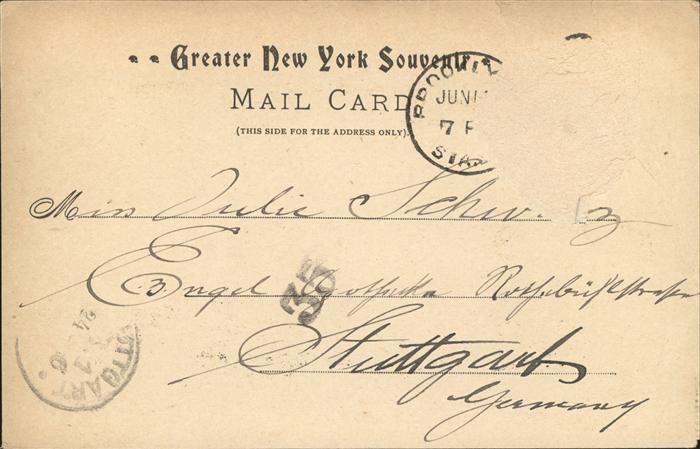 Greater New York Souvenir
MAIL CARD
(THIS SIDE FOR THE ADDRESS ONLY).
BROOKLY
JUN
7 P
STA
Miss Julie Schw. z
Engel Rothebühlstrasse
35
Stuttgart
Germany
STUTTGART
24